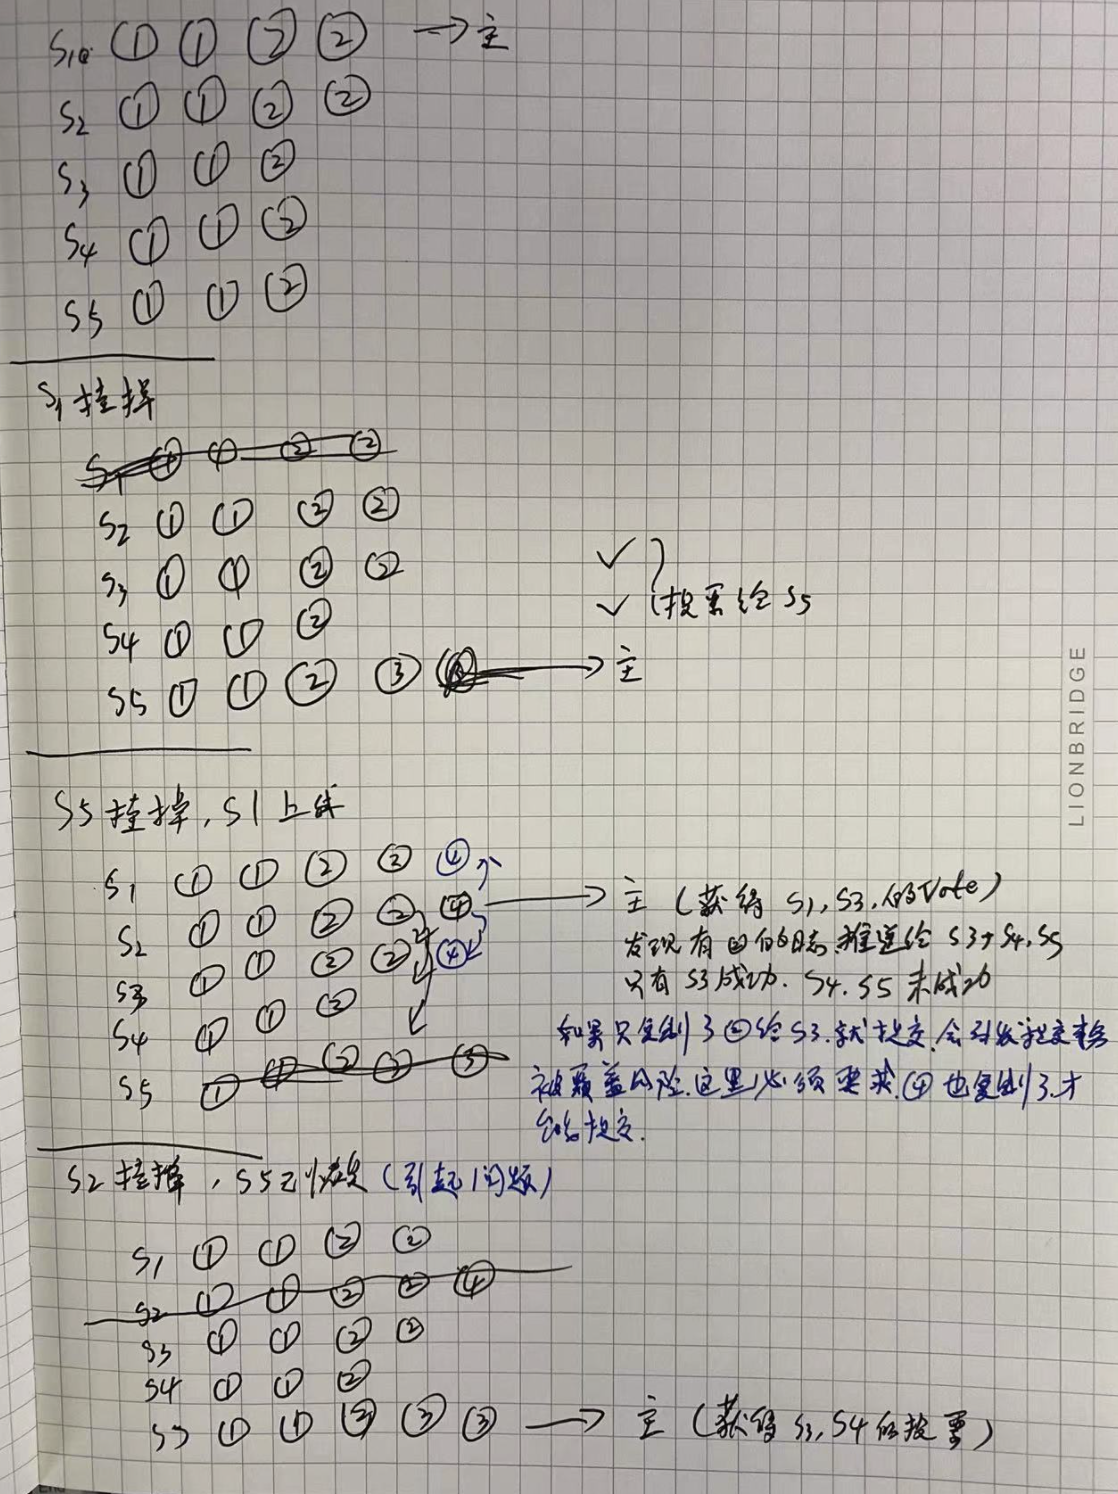 S1 ① ① ② ② → 主
S2 ① ① ② ②
S3 ① ① ②
S4 ① ① ②
S5 ① ① ②
S1 挂掉
S1 ① ① ② ②
S2 ① ① ② ②
S3 ① ① ② ② ✓
S4 ① ① ② ✓ 投票给 S5
S5 ① ① ② ③ → 主
S5 挂掉, S1 上线
S1 ① ① ② ② ④
S2 ① ① ② ② ④ → 主 (获得 S1, S3, 的Vote)
S3 ① ① ② ② ④ 发现有 的日志, 推送给 S3, S4, S5
只有 S3 成功. S4. S5 未成功
S4 ① ① ②
如果只复制了②给 S3. 就提交, 会引发
S5 ① ① ② ③ ③
被覆盖风险. 这里必须要求, ④ 也复制了. 才
能提交.
S2 挂掉, S5 已恢复 (引起问题)
S1 ① ① ② ②
S2 ① ① ② ② ④
S3 ① ① ② ②
S4 ① ① ②
S5 ① ① ② ③ ③ → 主 (获得 S3, S4 的投票)
LIONBRIDGE